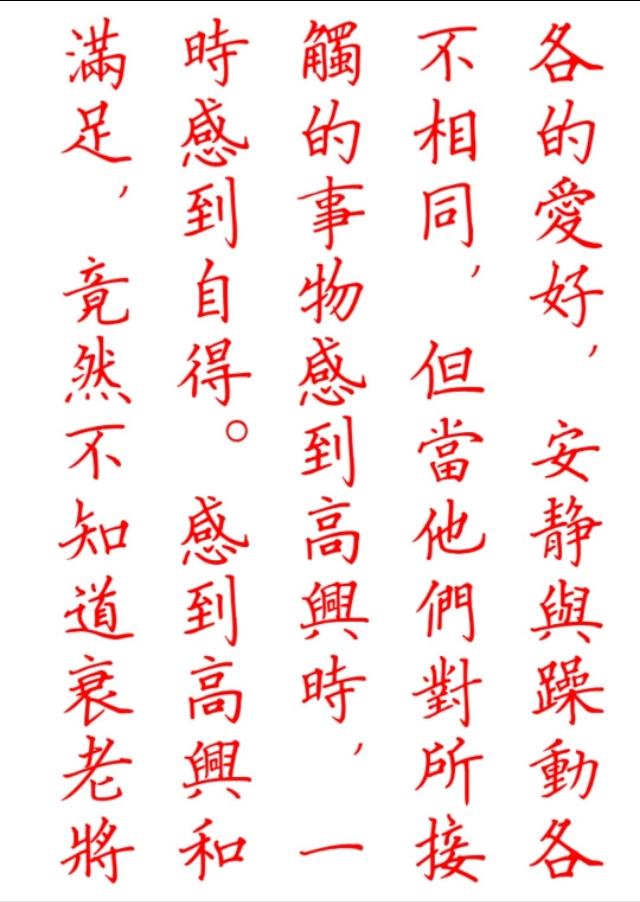 各的愛好，安靜與躁動各
不相同，但當他們對所接
觸的事物感到高興時，一
時感到自得。感到高興和
滿足，竟然不知道衰老將